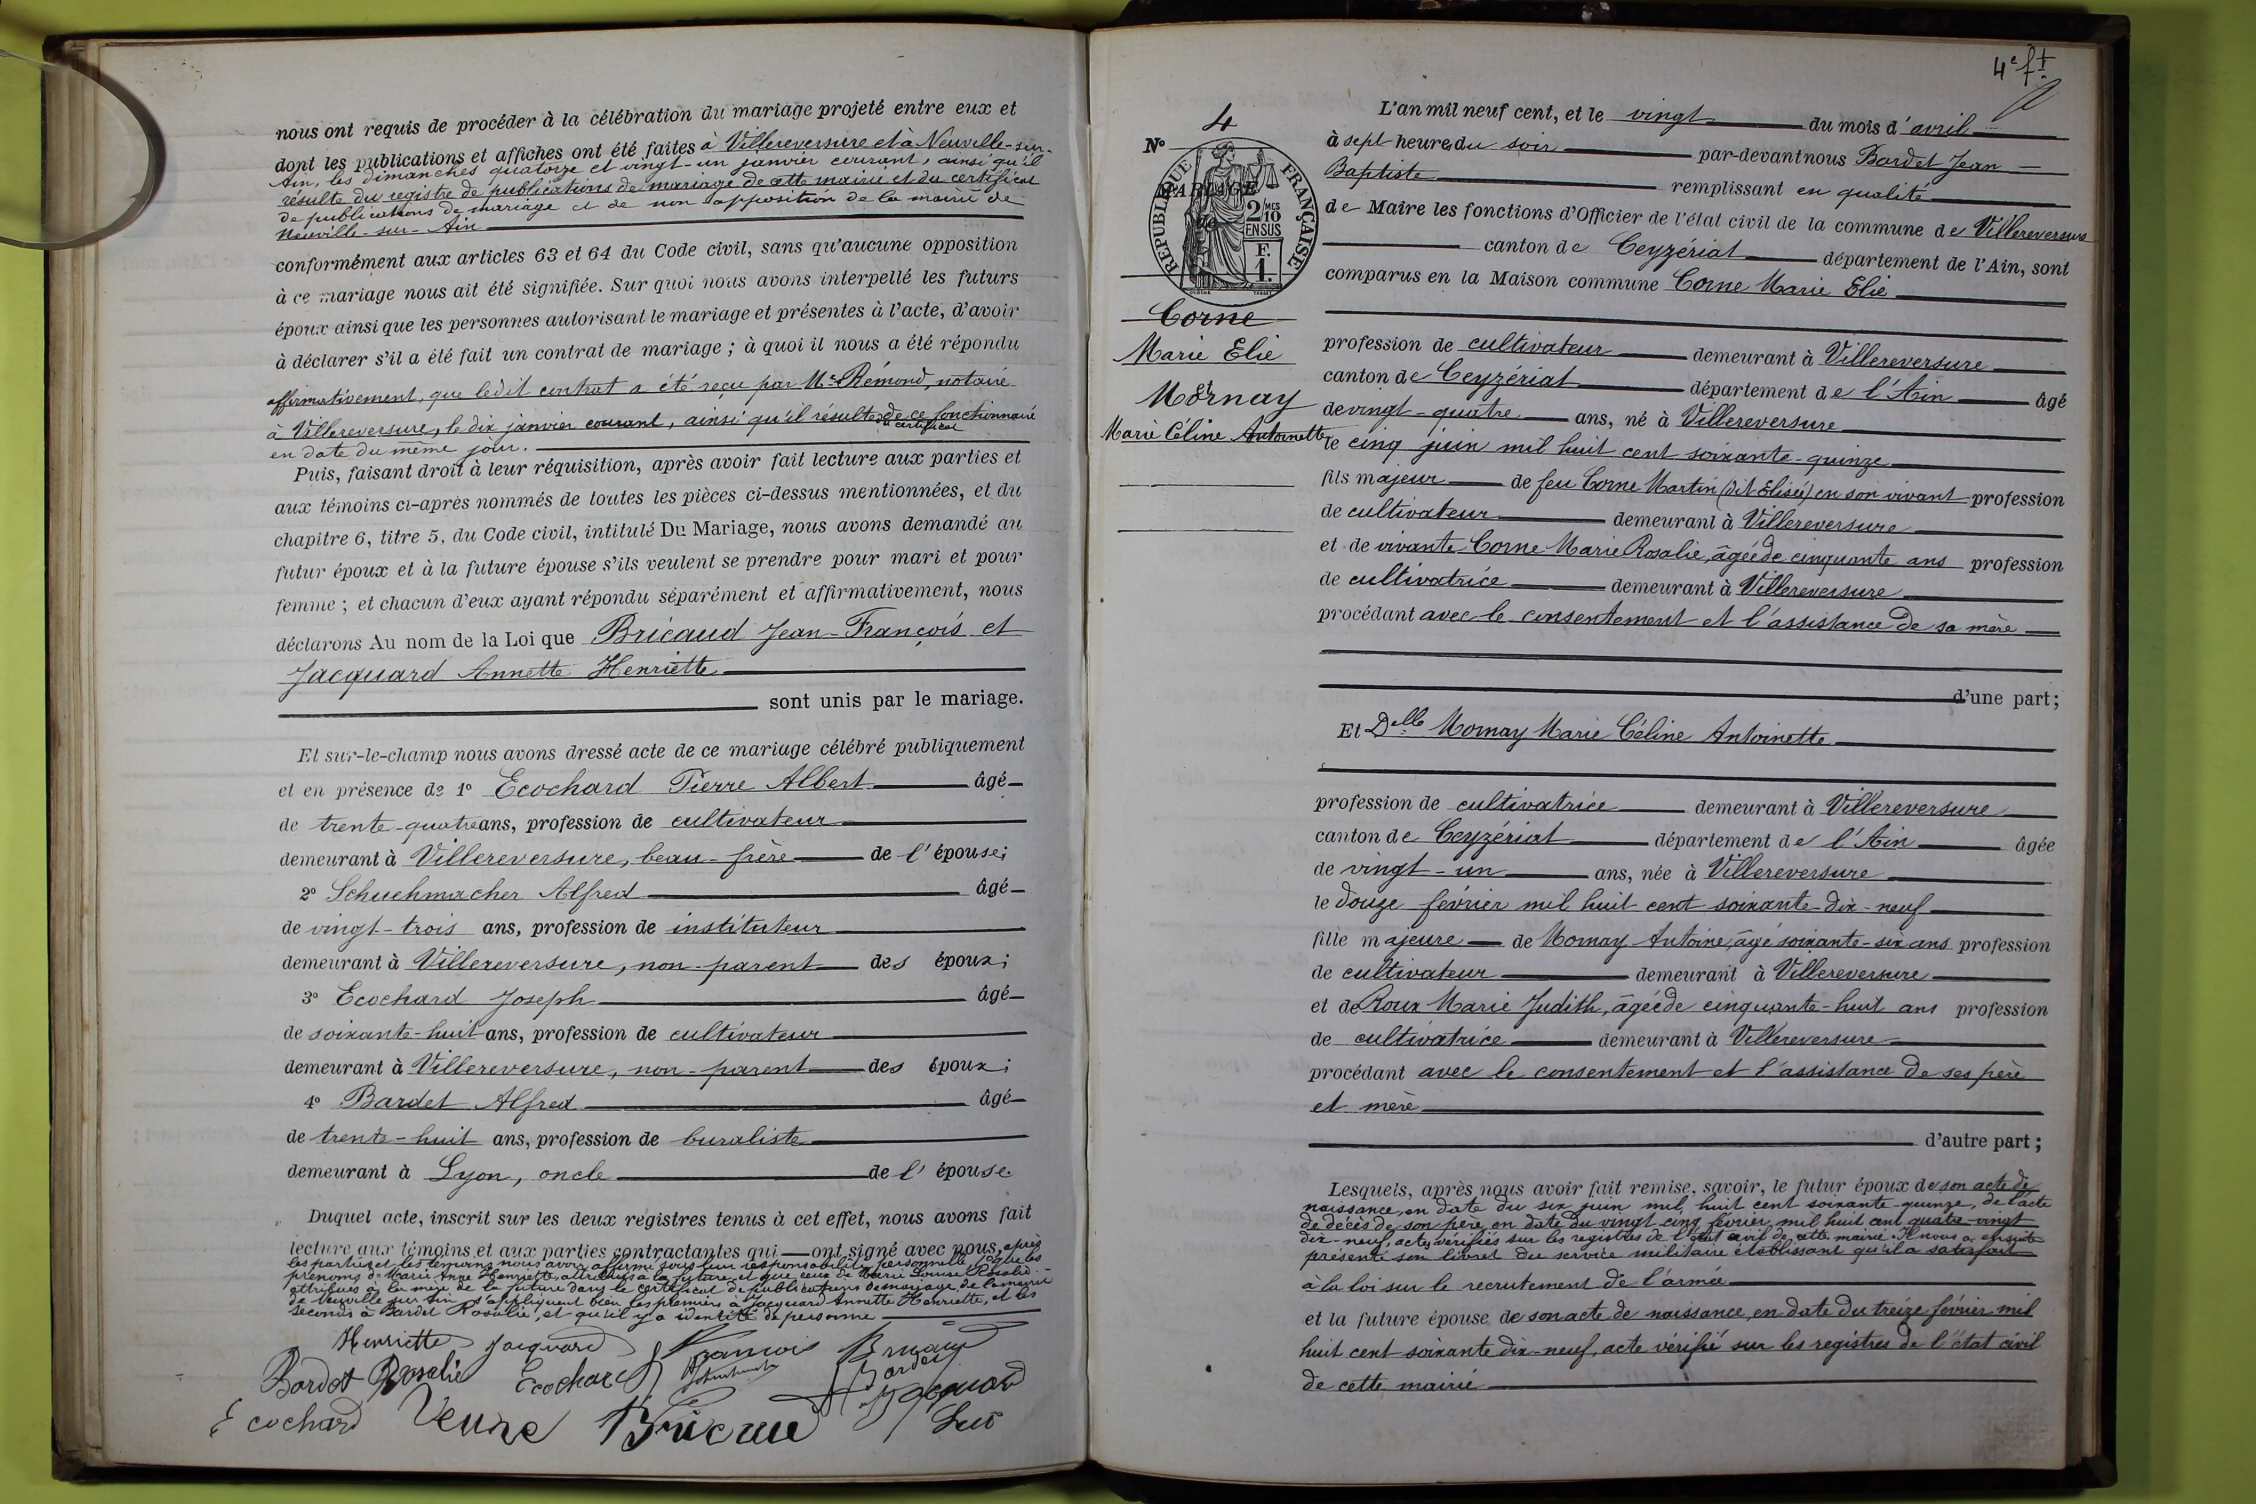 nous ont requis de procéder à la célébration du mariage projeté entre eux et
dont les publications et affiches ont été faites à Villereversure et à Neuville-sur-
Ain, les dimanches quatorze et vingt-un janvier courant, ainsi qu'il
résulte du registre de publications de mariage de cette mairie et du certificat
de publications de mariage et de non opposition de la mairie de
Neuville-sur-Ain
conformément aux articles 63 et 64 du Code civil, sans qu'aucune opposition
à ce mariage nous ait été signifiée. Sur quoi nous avons interpellé les futurs
époux ainsi que les personnes autorisant le mariage et présentes à l'acte, d'avoir
à déclarer s'il a été fait un contrat de mariage ; à quoi il nous a été répondu
affirmativement, que ledit contrat a été reçu par Me Rémond, notaire
à Villereversure, le dix janvier courant, ainsi qu'il résulte du certificat de ce fonctionnaire
en date du même jour.
Puis, faisant droit à leur réquisition, après avoir fait lecture aux parties et
aux témoins ci-après nommés de toutes les pièces ci-dessus mentionnées, et du
chapitre 6, titre 5, du Code civil, intitulé Du Mariage, nous avons demandé au
futur époux et à la future épouse s'ils veulent se prendre pour mari et pour
femme ; et chacun d'eux ayant répondu séparément et affirmativement, nous
déclarons Au nom de la Loi que Bricaud Jean-François et
Jacquard Annette Henriette
sont unis par le mariage.
Et sur-le-champ nous avons dressé acte de ce mariage célébré publiquement
et en présence de 1° Ecochard Pierre Albert âgé
de trente-quatre ans, profession de cultivateur
demeurant à Villereversure, beau-frère de l'épouse;
2° Schuehmacher Alfred âgé
de vingt-trois ans, profession de instituteur
demeurant à Villereversure, non-parent des époux;
3° Ecochard Joseph âgé
de soixante-huit ans, profession de cultivateur
demeurant à Villereversure, non-parent des époux;
4° Bardet Alfred âgé
de trente-huit ans, profession de buraliste
demeurant à Lyon, oncle de l'épouse
Duquel acte, inscrit sur les deux registres tenus à cet effet, nous avons fait
lecture aux témoins et aux parties contractantes qui ont signé avec nous, après
les parties et les témoins nous avoir affirmé sous leur responsabilité personnelle que les
prénoms de Marie Anne Henriette, attribués à la future et que ceux de Marie Louise Rosalie
attribués à la mère de la future dans le certificat de publications de mariage de la mairie
de Neuville sur Ain s'appliquent bien les premiers à Jacquard Annette Henriette, et les
seconds à Bardet Rosalie, et qu'il y a identité de personne
Henriette Jacquard François Bricaud
Bardet Rosalie Ecochard Bardet
Ecochard Veuve Bricaud Jacquard
4e ft
N° 4
MARIAGE
de
RÉPUBLIQUE FRANÇAISE
2/10 MES
EN SUS
F.
1.
Corne
Marie Elie
et
Mornay
Marie Céline Antoinette
L'an mil neuf cent, et le vingt du mois d'avril
à sept heures du soir par-devant nous Bardet Jean
Baptiste remplissant en qualité
de Maire les fonctions d'Officier de l'état civil de la commune de Villereversure
canton de Ceyzériat département de l'Ain, sont
comparus en la Maison commune Corne Marie Elie
profession de cultivateur demeurant à Villereversure
canton de Ceyzériat département de l'Ain âgé
de vingt-quatre ans, né à Villereversure
le cinq juin mil huit cent soixante-quinze
fils majeur de feu Corne Martin (dit Elisée) en son vivant profession
de cultivateur demeurant à Villereversure
et de vivante Corne Marie Rosalie, âgée de cinquante ans profession
de cultivatrice demeurant à Villereversure
procédant avec le consentement et l'assistance de sa mère
d'une part;
Et Delle Mornay Marie Céline Antoinette
profession de cultivatrice demeurant à Villereversure
canton de Ceyzériat département de l'Ain âgée
de vingt-un ans, née à Villereversure
le douze février mil huit cent soixante-dix-neuf
fille majeure de Mornay Antoine, âgé soixante-six ans profession
de cultivateur demeurant à Villereversure
et de Roux Marie Judith, âgée de cinquante-huit ans profession
de cultivatrice demeurant à Villereversure
procédant avec le consentement et l'assistance de ses père
et mère
d'autre part;
Lesquels, après nous avoir fait remise, savoir, le futur époux de son acte de
naissance, en date du six juin mil huit cent soixante-quinze, de l'acte
de décès de son père en date du vingt cinq février mil huit cent quatre-vingt
dix-neuf, actes vérifiés sur les registres de l'état civil de cette mairie. Il nous a ensuite
présenté son livret du service militaire établissant qu'il a satisfait
à la loi sur le recrutement de l'armée
et la future épouse de son acte de naissance, en date du treize février mil
huit cent soixante dix-neuf, acte vérifié sur les registres de l'état civil
de cette mairie